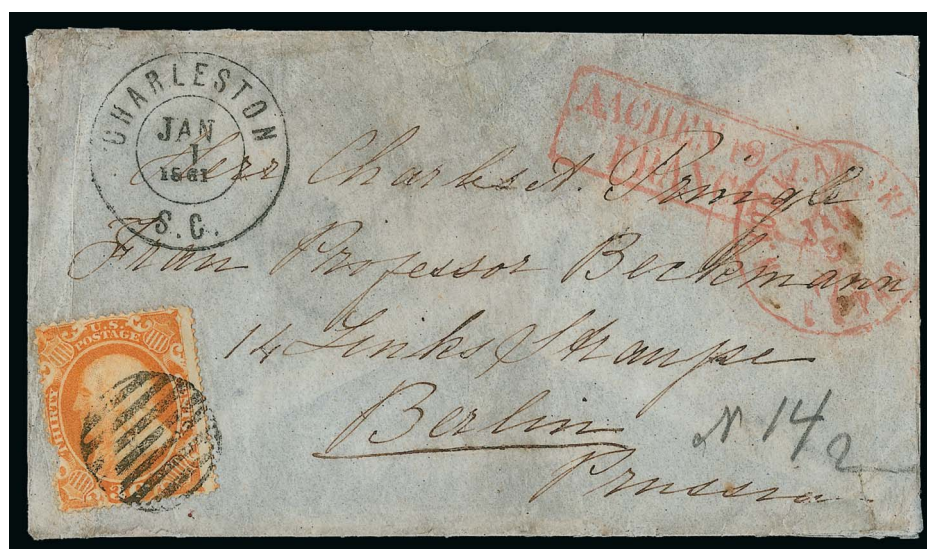 CHARLESTON
JAN
1
1861
S.C.
AACHEN 19
FRANCO
Herr Charles A. Pringle
Frau Professor Beckmann
14 Links Straupe
Berlin
Prussia
U.S.
POSTAGE
THIRTY
N 14